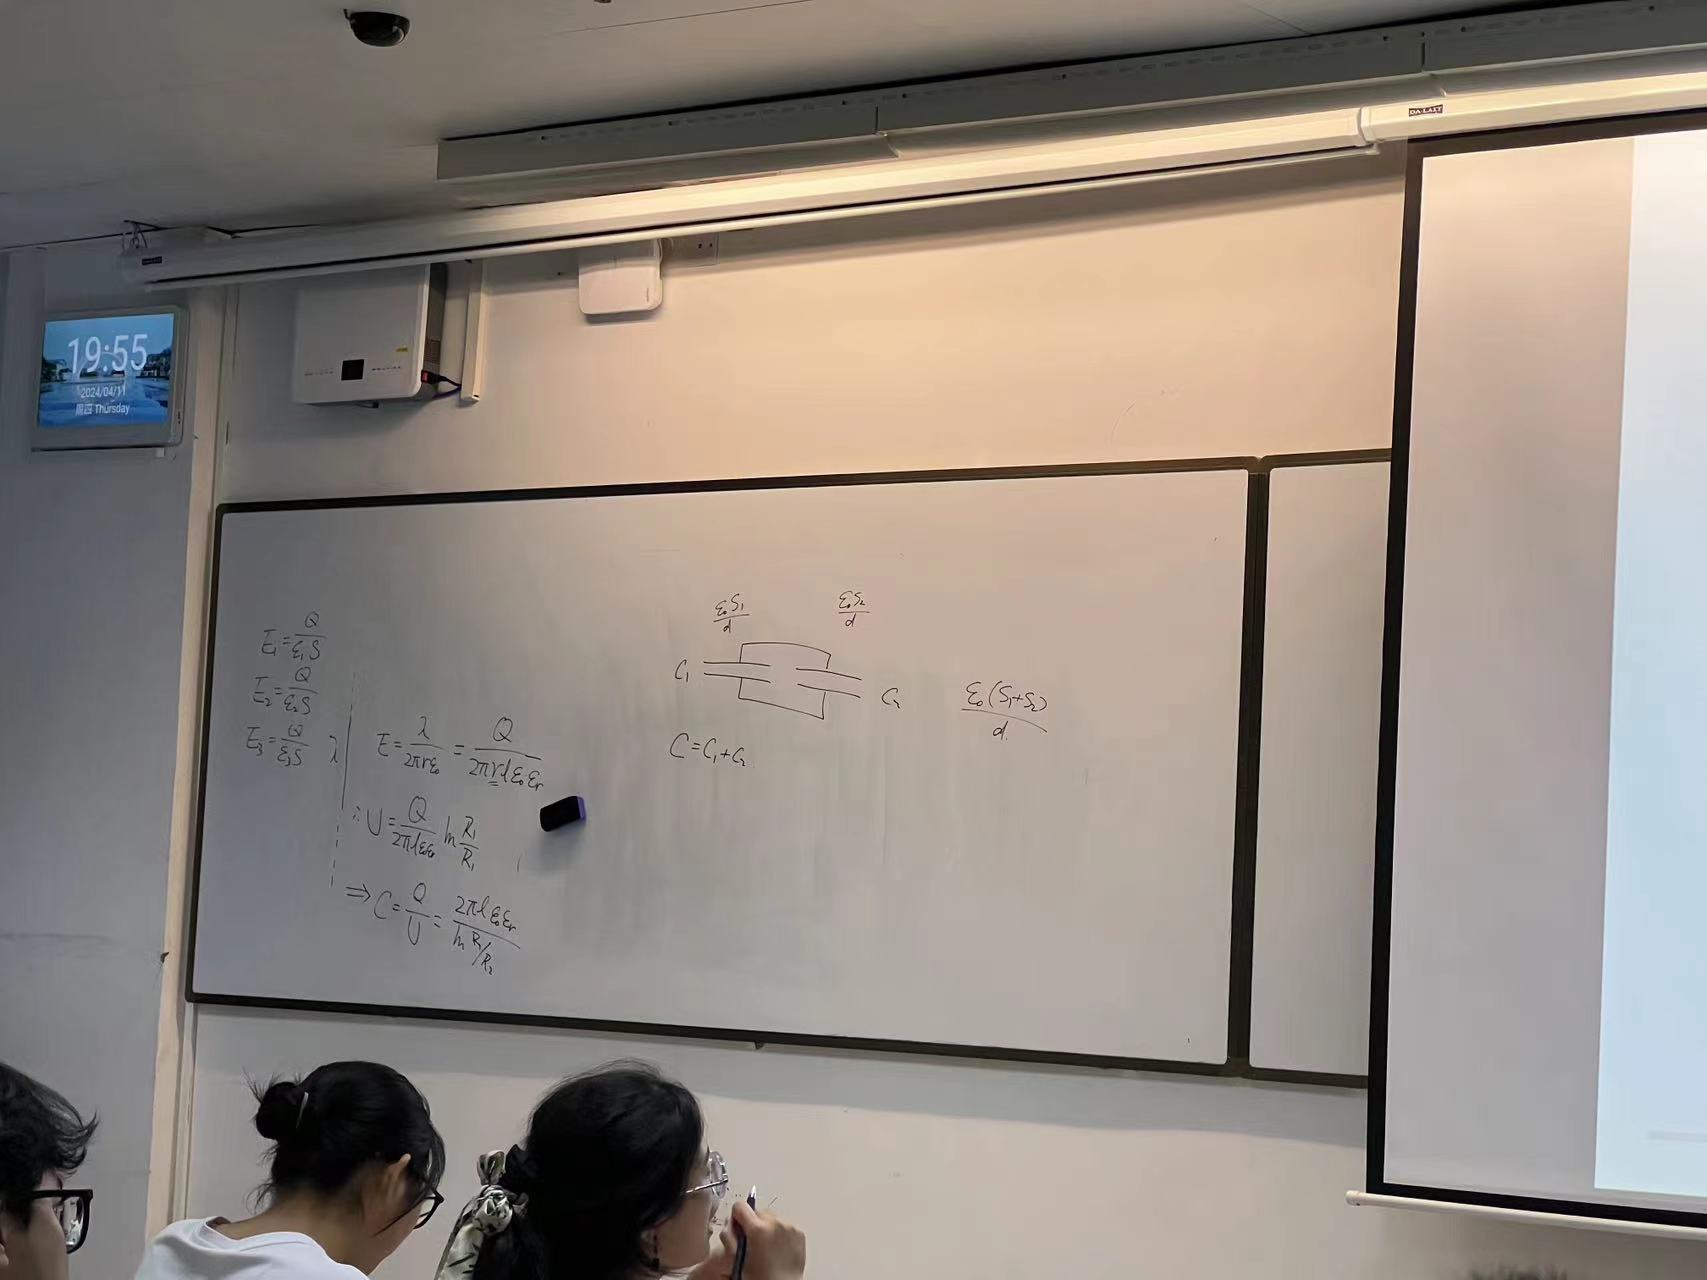 DA-LITE
19:55
2024/04/11
周四 Thursday
E₁=Q/ε₁S
E₂=Q/ε₂S
E₃=Q/ε₃S
λ
E=λ/2πrε₀=Q/2πrlε₀εᵣ
∴U=Q/2πlε₀εᵣ ln R₁/R₁
⇒C=Q/U=2πlε₀εᵣ/ln R₁/R₂
ε₀S₁/d
ε₀S₂/d
C₁
C₂
C=C₁+C₂.
ε₀(S₁+S₂)/d.